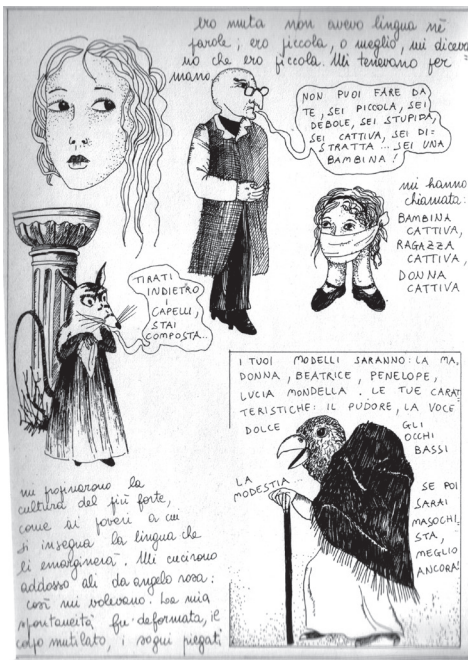 ero muta non avevo lingua nè
parole; ero piccola, o meglio, mi diceva
no che ero piccola. Mi tenevano per
mano
NON PUOI FARE DA
TE, SEI PICCOLA, SEI
DEBOLE, SEI STUPIDA,
SEI CATTIVA, SEI DI-
STRATTA... SEI UNA
BAMBINA!
mi hanno
chiamata:
BAMBINA
CATTIVA,
RAGAZZA
CATTIVA,
DONNA
CATTIVA
TIRATI
INDIETRO
I
CAPELLI,
STAI
COMPOSTA...
I TUOI MODELLI SARANNO: LA MA.
DONNA, BEATRICE, PENELOPE,
LUCIA MONDELLA. LE TUE CARAT
TERISTICHE: IL PUDORE, LA VOCE
DOLCE
GLI
OCCHI
BASSI
LA
MODESTIA...
SE POI
SARAI
MASOCHI-
STA,
MEGLIO
ANCORA!
mi propinarono la
cultura del più forte,
come ai poveri a cui
si insegna la lingua che
li emarginerà. Mi cucirono
addosso ali da angelo rosa:
così mi volevano. La mia
spontaneità fu deformata, il
corpo mutilato, i sogni piegati